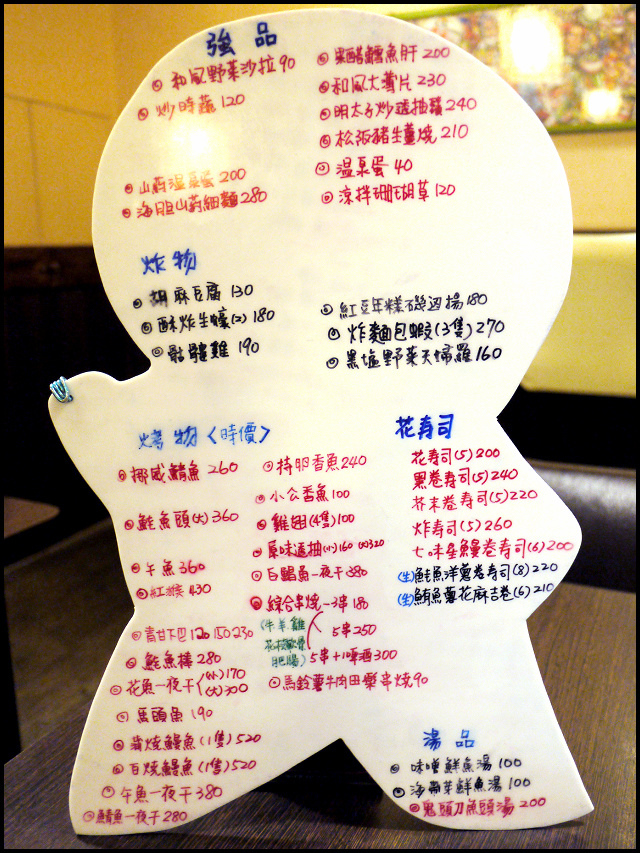 強品
和風野菜沙拉 90
炒時蔬 120
山葯溫泉蛋 200
海胆山葯細麵 280
果醋鱈魚肝 200
和風大薄片 230
明太子炒透抽 240
松阪豬生薑燒 210
温泉蛋 40
涼拌珊瑚草 120
炸物
胡麻豆腐 130
酥炸生蠔(2) 180
骷髏雞 190
紅豆年糕磯辺揚 180
炸麵包蝦(3隻) 270
黑墟野菜天婦羅 160
烤物〈時價〉
挪威鯖魚 260
鮭魚頭(大) 360
午魚 360
紅喉 430
青甘下巴 120 150 230
鮭魚棒 280
花魚一夜干 (小)170 (大)300
馬頭魚 190
蒲燒鰻魚(1隻) 520
白燒鰻魚(1隻) 520
午魚一夜干 380
鯖魚一夜干 280
持卵香魚 240
小公香魚 100
雞翅(4隻) 100
原味透抽(小)160 (大)320
白鯧魚一夜干 380
綜合串燒 3串 180
(牛羊雞 花枝軟骨 肥腸)
5串 250
5串+1啤酒 300
馬鈴薯牛肉田樂串燒 90
花寿司
花寿司(5) 200
黑卷寿司(5) 240
芥末卷寿司(5) 220
炸寿司(5) 260
七味朵鰻卷寿司(6) 200
(生)鮭魚洋蔥卷寿司(8) 220
(生)鮪魚薯花麻吉卷(6) 210
湯品
味噌鮮魚湯 100
海帶芽鮮魚湯 100
鬼頭刀魚頭湯 200